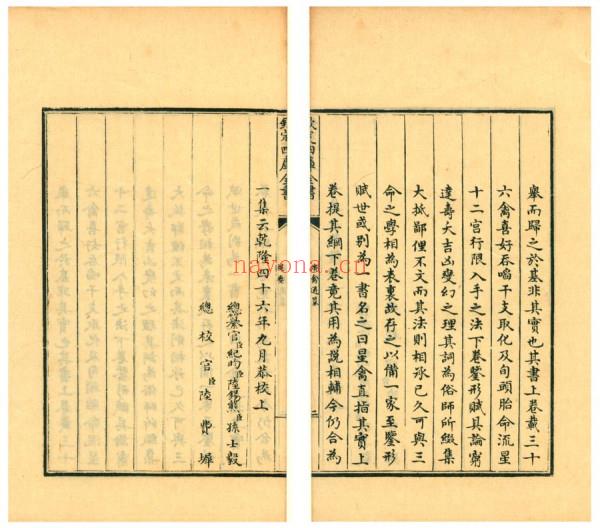 舉而歸之於基非其實也其書上卷載三十
六禽喜好吞啗干支取化及旬頭胎命流星
十二宮行限入手之法下卷鑒形賦具論窮
達壽夭吉凶變幻之理其詞為俗師所綴集
大抵鄙俚不文而其法則相承已久可與三
命之學相為表裏故存之以備一家至鑒形
賦世或别為一書名之曰星禽直指其實上
卷提其綱下卷竟其用為說相輔今仍合為
欽定四庫全書
二
一集云乾隆四十六年九月恭校上
總纂官臣紀昀臣陸錫熊臣孫士毅
總校官臣陸費墀
nayona.cn